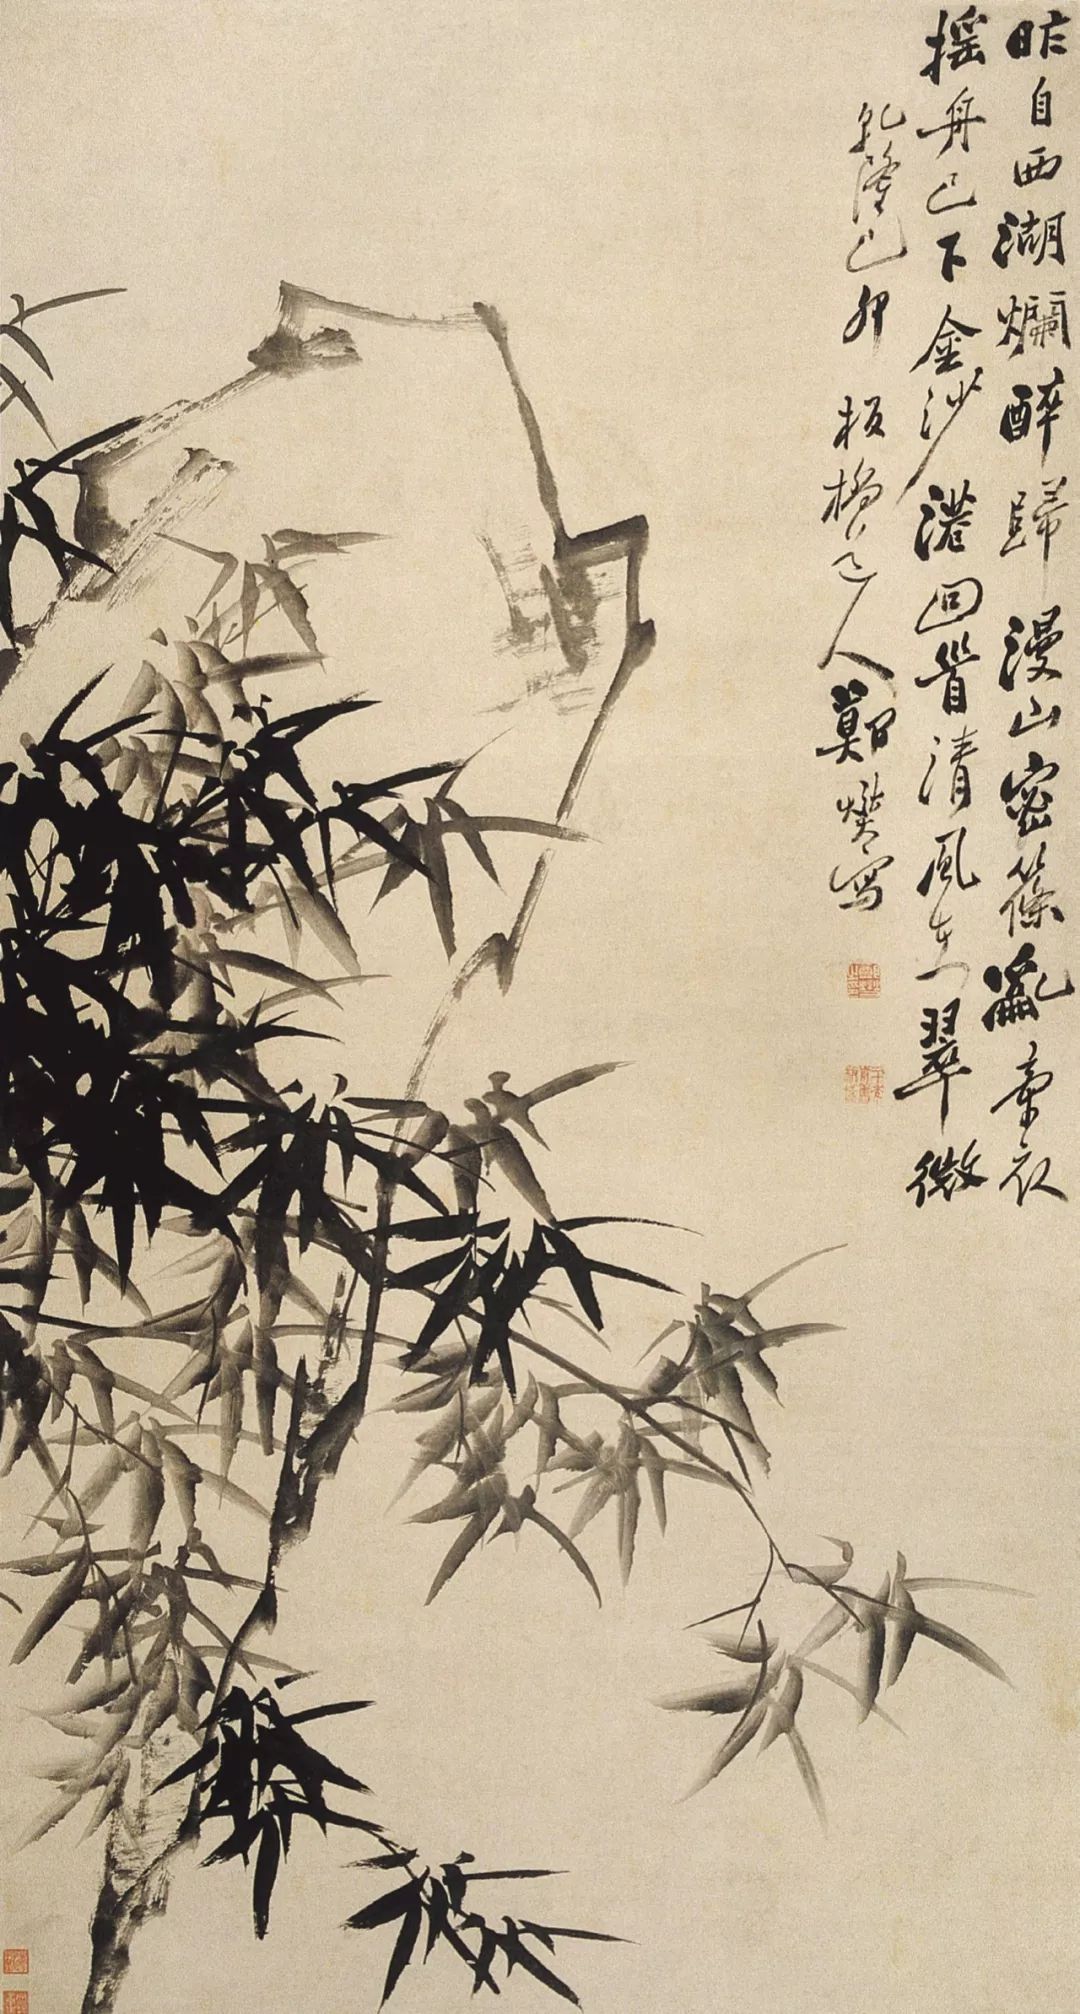 昨自西湖爛醉歸漫山密篠亂牽衣
摇舟已下金沙港回首清風在翠微
乾隆己卯 板橋道人鄭燮寫